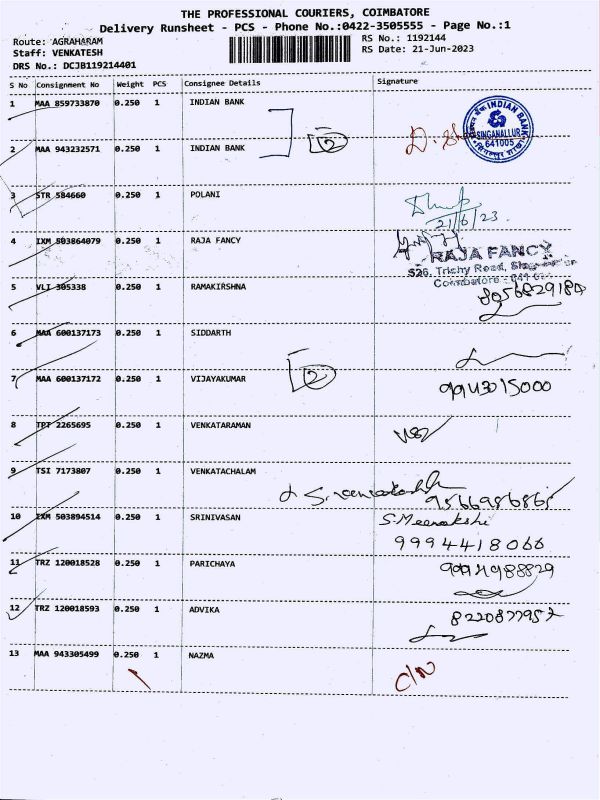 THE PROFESSIONAL COURIERS, COIMBATORE
Delivery Runsheet - PCS - Phone No.:0422-3505555 - Page No.:1
Route: AGRAHARAM
RS No.: 1192144
Staff: VENKATESH
RS Date: 21-Jun-2023
DRS No.: DCJB119214401
S No Consignment No Weight PCS Consignee Details Signature
1 MAA 859733870 0.250 1 INDIAN BANK
2 MAA 943232571 0.250 1 INDIAN BANK
2
INDIAN BANK
SINGANALLUR
641005
3 STR 584660 0.250 1 POLANI
21/6/23.
4 IXM 503864079 0.250 1 RAJA FANCY
RAJA FANCY
526, Trichy Road,
Coimbatore - 641
5 VLI 305338 0.250 1 RAMAKIRSHNA
6 MAA 600137173 0.250 1 SIDDARTH
7 MAA 600137172 0.250 1 VIJAYAKUMAR
2
9943015000
8 TPT 2265695 0.250 1 VENKATARAMAN
9 TSI 7173807 0.250 1 VENKATACHALAM
10 IXM 503894514 0.250 1 SRINIVASAN
S.Meenakshi
9994418066
11 TRZ 120018528 0.250 1 PARICHAYA
12 TRZ 120018593 0.250 1 ADVIKA
8220877957
13 MAA 943305499 0.250 1 NAZMA
C/N